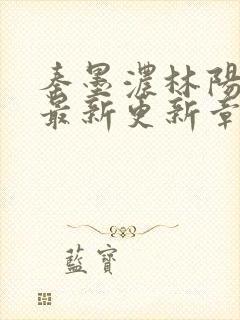 秦墨濃林陽
最新更新章
藍寶